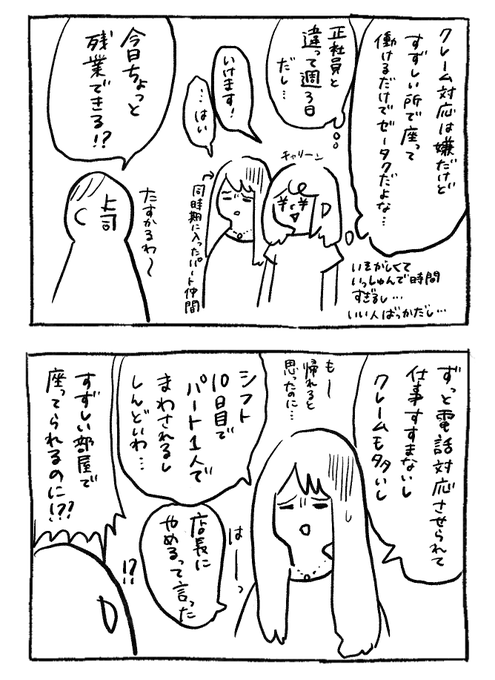 クレーム対応は嫌だけど
すずしい所で座って
働けるだけでゼータクだよな…
正社員と
違って週3日
だし…
いそがしくて
いっしゅんで時間
すぎるし…
いい人ばっかだし…
チャリーン
¥ ¥
いけます!
…はい
同時期に入ったパート仲間
今日ちょっと
残業できる!?
上司
たすかるわ〜
ずっと電話対応させられて
仕事すすまないし
クレームも多いし
も〜
帰れると
思たのに…
シフト
10日目で
パート1人で
まわされるし
しんどいわ…
はーーっ
店長に
やめるって言った
すずしい部屋で
座ってられるのに!??
!?